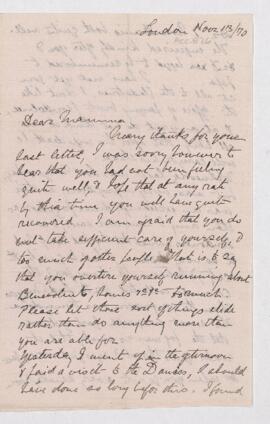 London Novr 13/70
Dear Mamma
Many thanks for your
last letter, I was sorry however to
hear that you had not been feeling
quite well, & hope that at any rate
by this time you will have quite
recovered. I am afraid that you do
not take sufficient care of yourself, &
too much of other people. That is to say
that you overtire yourself running about
too much.
Please let those sort of things slide
rather than do anything more than
you are able for.
Yesterday I went up in the afternoon
& paid a visit to the I should
have done so long before this. I found